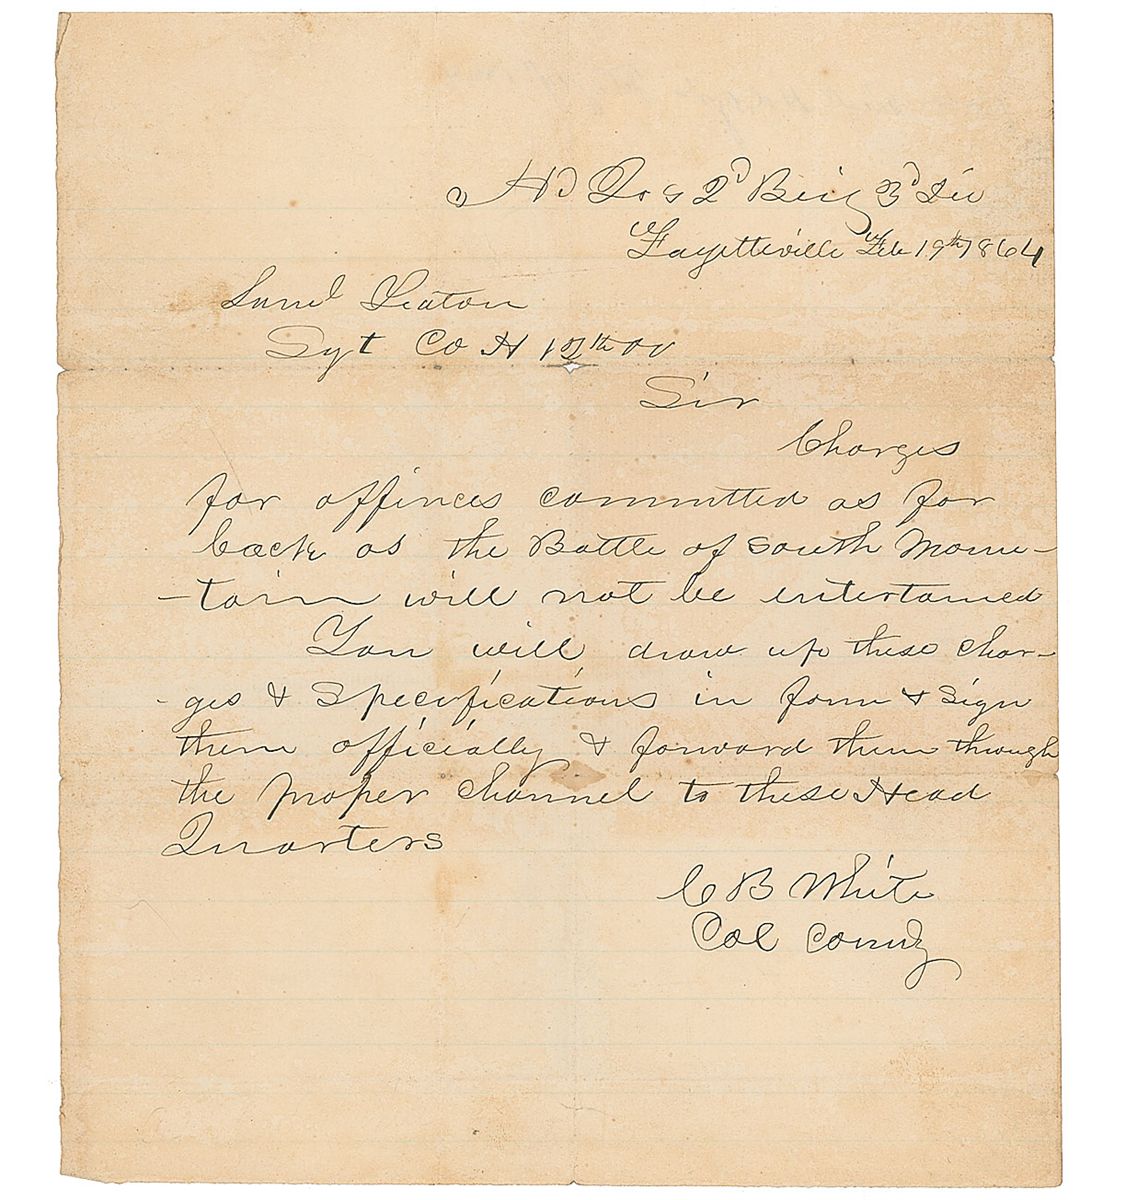 Hd Qrs 2d Brig 3d Div
Fayetteville Feb 19th 1864
Saml Seaton
Sgt Co H 12th OV
Sir
Charges
for offinces committed as far
back as the Battle of South Moun-
-tain will not be entertained
You will draw up these char-
-ges & Specifications in form & sign
them officially & forward them through
the proper channel to these Head
Quarters
C B White
Col Comdg